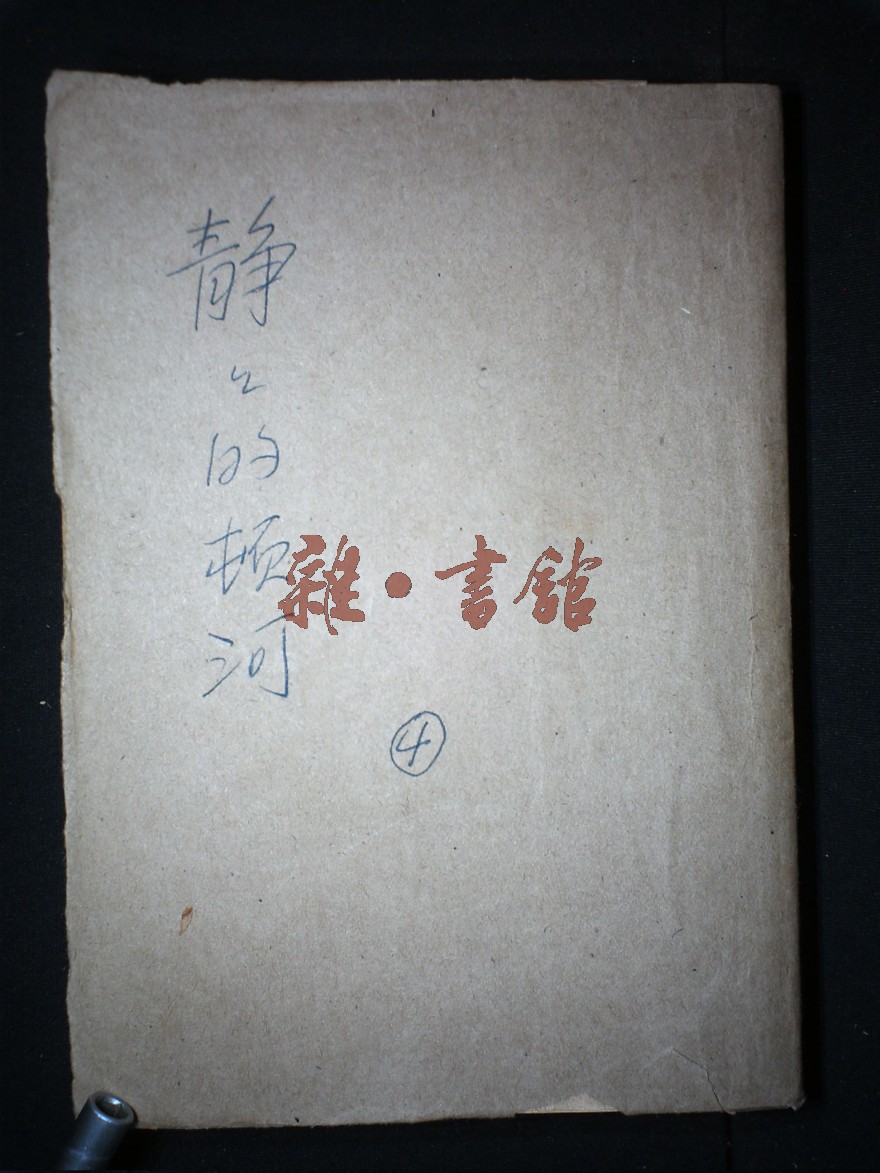 静々的顿河
雜·書館
④